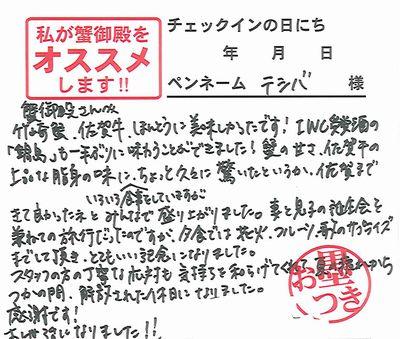 私が蟹御殿を
オススメ
します!!
チェックインの日にち
年 月 日
ペンネーム テシバ 様
蟹御殿さんの
竹崎蟹、佐賀牛、ほんとうに美味しかったです!IWC受賞酒の
「鍋島」も一年ぶりに味わうことができました!蟹の甘さ、佐賀牛の
上品な脂身の味に、ちょっと久々に驚いたというか、佐賀まで
いろいろ食事をしていますが
きて良かったネとみんなで盛り上がりました。妻と息子の誕生会を
兼ねての旅行だったのですが、夕食では花火、フルーツ、歌のサプライズ
までして頂き、とてもいい記念になりました。
スタッフの方の丁寧な応対も気持ちを和らげてくれて、夏の から
つかの間、解放された休日になりました。
感謝です!
お世話になりました!!
お墨
つき